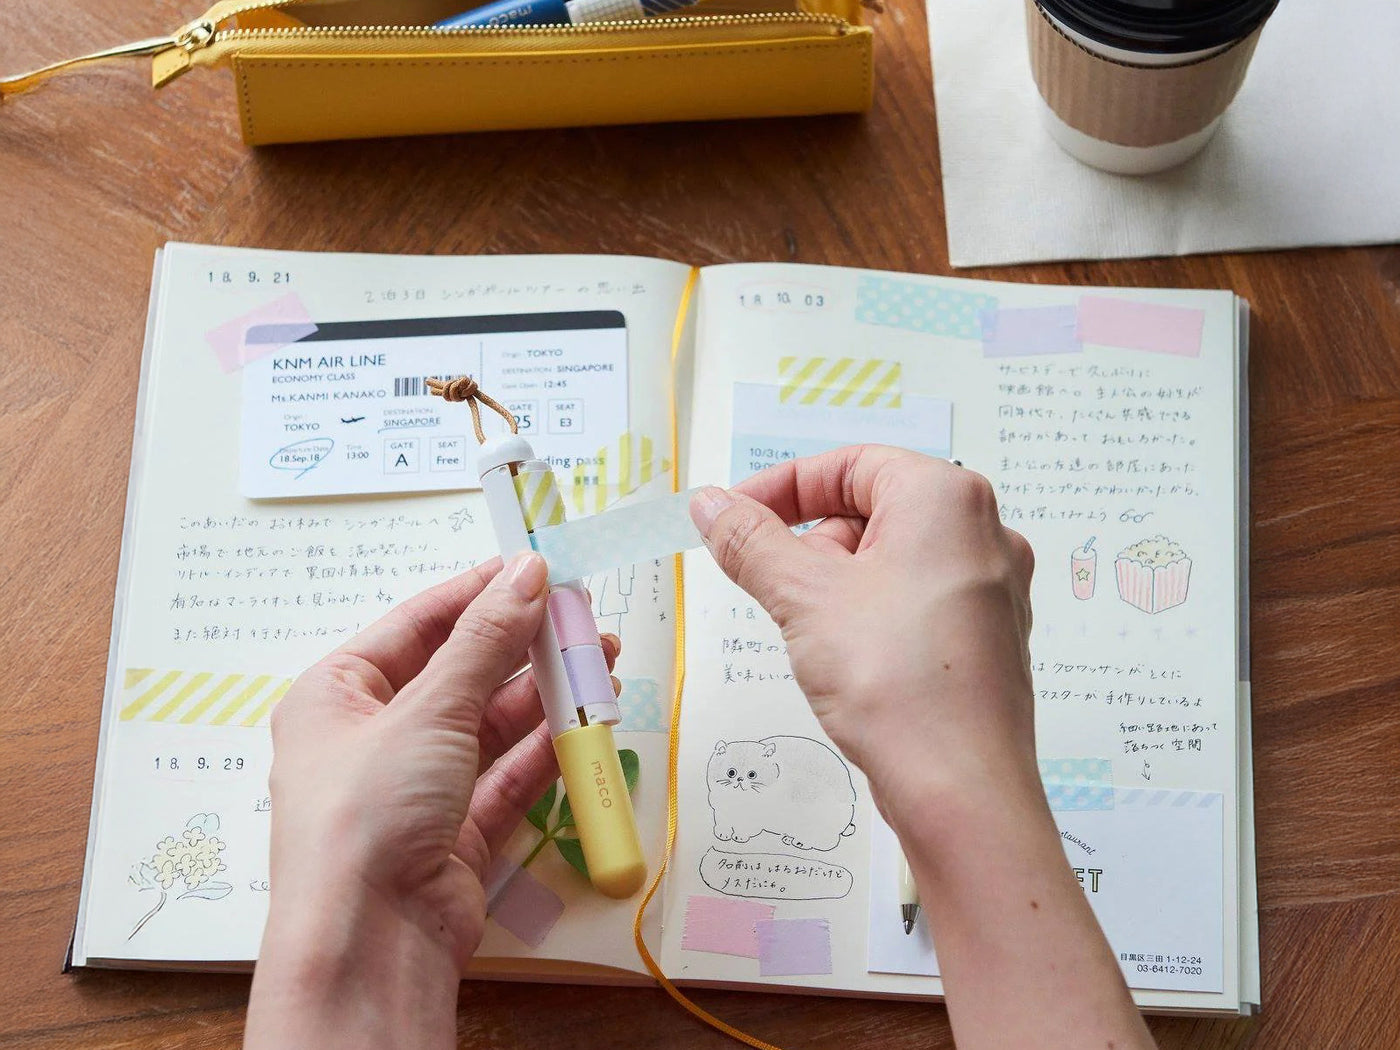 maco
18. 9. 21
2泊3日 シンガポールツアーの思い出
KNM AIR LINE
ECONOMY CLASS
Ms.KANMI KANAKO
Origin
TOKYO
DESTINATION
SINGAPORE
Departure Date
18.Sep.18
Time
13:00
GATE
A
SEAT
Free
Origin TOKYO
DESTINATION SINGAPORE
12:45
GATE
25
SEAT
E3
ding pass
このあいだの お休みで シンガポールへ
市場で 地元の ご飯を 満喫したり、
リトル・インディアで 異国情緒を 味わったり
有名なマーライオンも見られた
また絶対 行きたいな〜!
18. 9. 29
近
maco
キレイ
18 10. 03
10/3(水)
19:0
サービスデーで 久しぶりに
映画館へ。主人公の女性が
同年代で、たくさん共感できる
部分があって おもしろかった。
主人公の友達の部屋にあった
サイドランプが かわいかったから、
今度探してみよう
18
隣町の
美味しいの
は クロワッサンが とくに
マスターが 手作りしているよ
細い路地にあって
落ちつく空間
名前は はるおだけど
メスだにゃ。
staurant
ET
目黒区三田 1-12-24
03-6412-7020